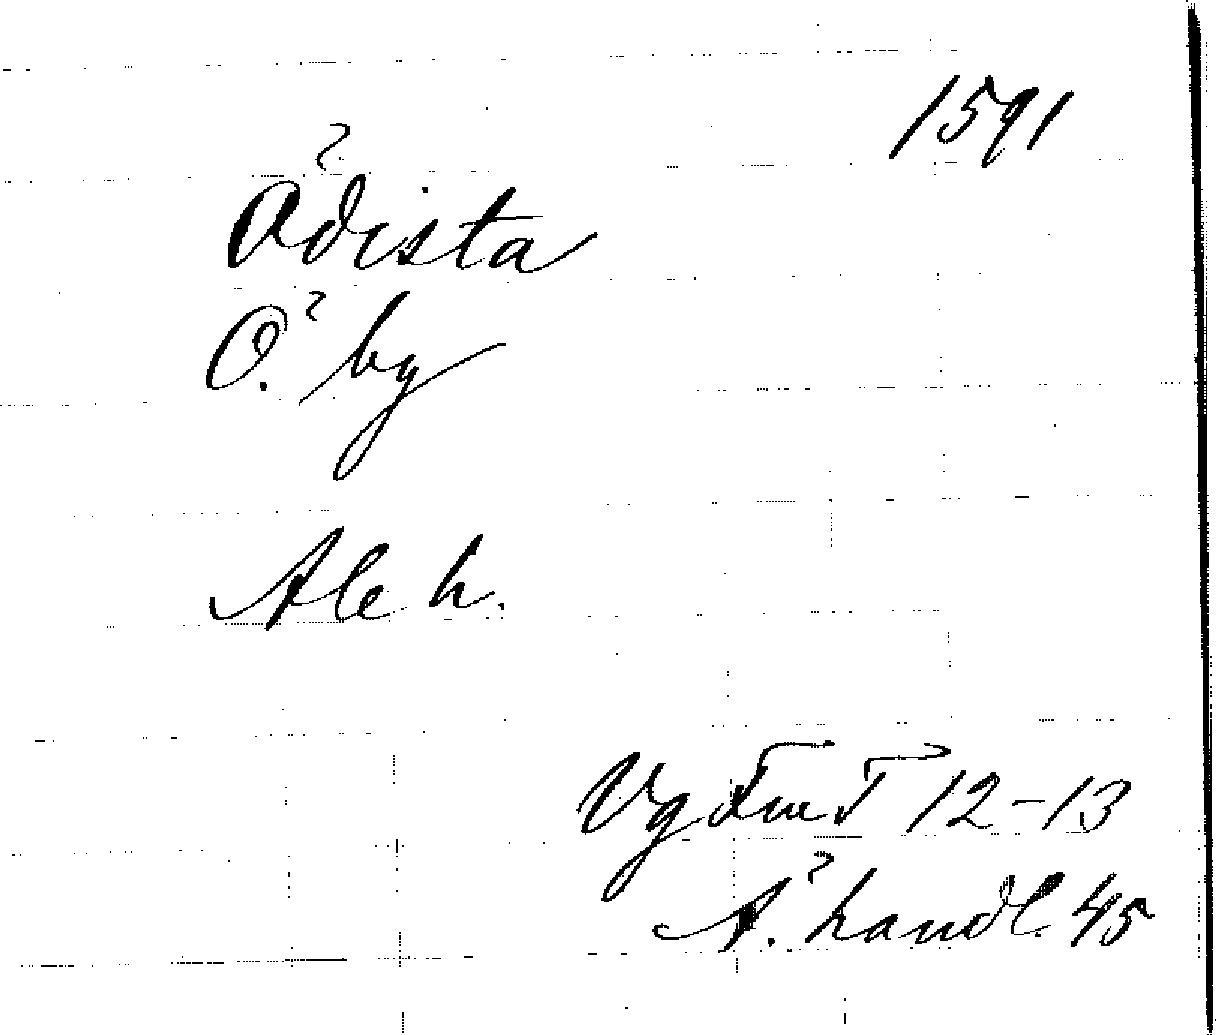 1591
Ödista
Ö. by
Ale h.
Vg FmT 12-13
Ä. handl. 45